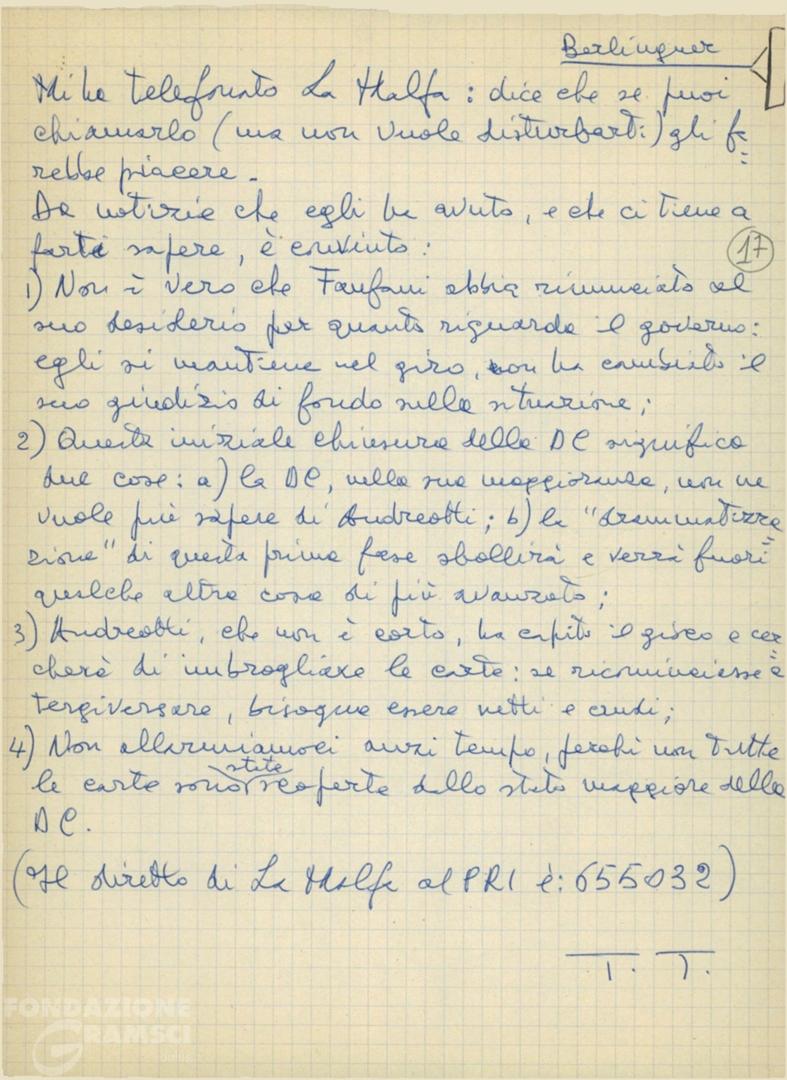 Berlinguer
Mi ha telefonato La Malfa : dice che se puoi
chiamarlo (ma non vuole disturbarti) gli fa=
rebbe piacere.
Da notizie che egli ha avuto, e che ci tiene a
farti sapere, è convinto :
17
1) Non è vero che Fanfani abbia rinunciato al
suo desiderio per quanto riguarda il governo:
egli si mantiene nel giro, non ha cambiato il
suo giudizio di fondo sulla situazione;
2) Questa iniziale chiusura della DC significa
due cose: a) la DC, nella sua maggioranza, non ne
vuole più sapere di Andreotti; b) la "drammatizza=
zione" di questa prima fase sbollirà e verrà fuori
qualche altra cosa di più avanzato;
3) Andreotti, che non è corto, ha capito il gioco e cer=
cherà di imbrogliare le carte: se ricominciasse a
tergiversare, bisogna essere netti e crudi;
4) Non allarmiamoci anzi tempo, perché non tutte
le carte sono state scoperte dallo stato maggiore della
DC.
(Il diretto di La Malfa al PRI è: 655032)
T. T.
FONDAZIONE
GRAMSCI